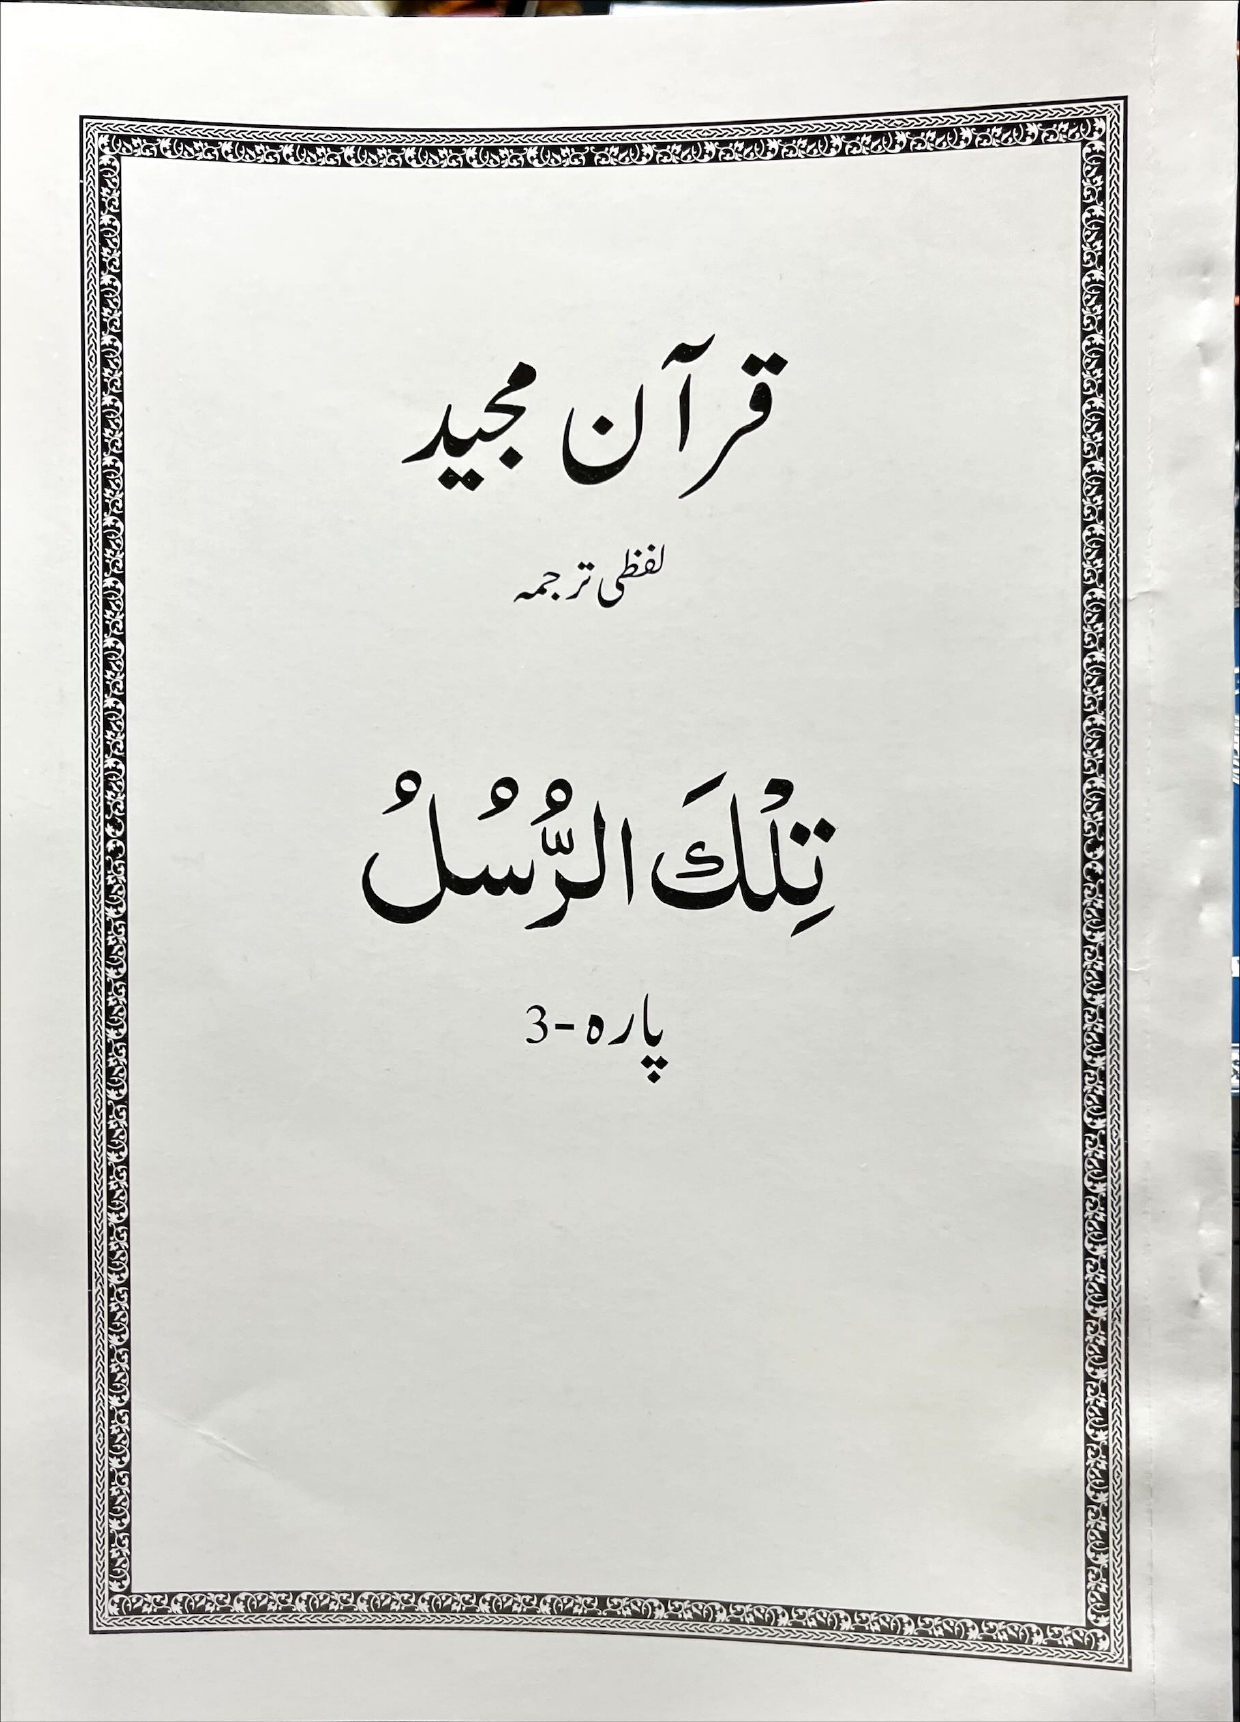 قرآن مجید
لفظی ترجمہ
تِلْكَ الرُّسُلُ
پارہ -3